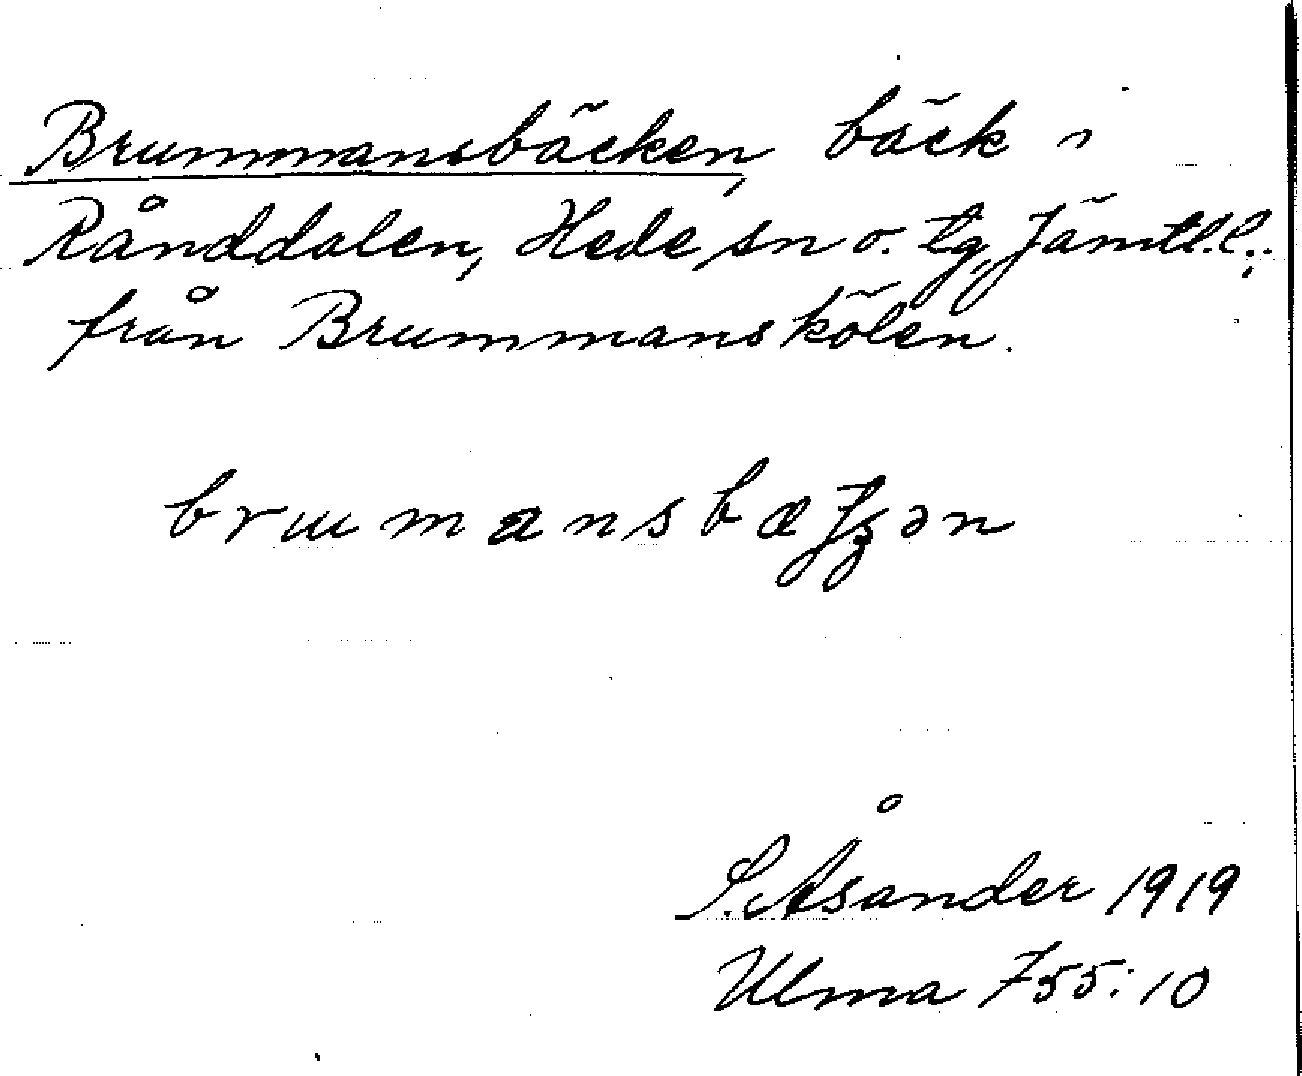 Brummansbäcken, bäck i
Rånddalen, Hede sn o. tg, Jämtl.l.;
från Brummanskölen.
S. Åsander 1919
Ulma 755:10